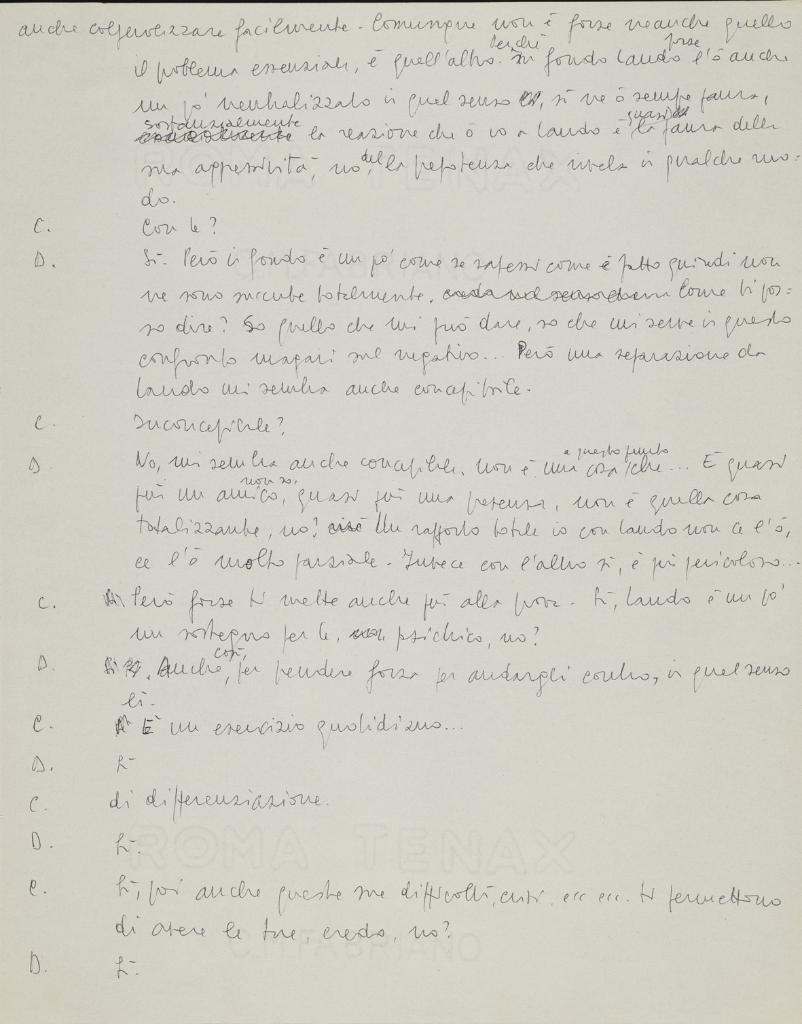 anche colpevolizzare facilmente. Comunque non è forse neanche quello
il problema essenziale, è quell'altro. Perché in fondo Lando forse l'ò anche
un pò neutralizzato in quel senso, sì ne ò sempre paura,
sostanzialmente la reazione che ò io a Lando è quasi la paura della
sua aggressività, no, della prepotenza che rivela in qualche mo=
do.
C. Con te?
D. Sì. Però in fondo è un pò come se sapessi come è fatto quindi non
ne sono succube totalmente. Come ti pos=
so dire? So quello che mi può dare, so che mi serve in questo
confronto magari sul negativo... Però una separazione da
Lando mi sembra anche concepibile.
C. Inconcepibile?
D. No, mi sembra anche concepibile, non è una cosa a questo punto che... È quasi
più un amico, non so, quasi più una presenza, non è quella cosa
totalizzante, no? Un rapporto totale io con Lando non ce l'ò,
ce l'ò molto parziale. Invece con l'altro sì, è più pericoloso...
C. Però forse ti mette anche più alla prova. Sì, Lando è un pò
un sostegno per te, psichico, no?
D. Anche così, per prendere forza per andargli contro, in quel senso
lì.
C. È un esercizio quotidiano...
D. Sì
C. di differenziazione.
D. Sì.
C. Sì, poi anche queste sue difficoltà, ecc ecc. ti permettono
di avere le tue, credo, no?
D. Sì.
ROMA TENAX
C.M. FABRIANO